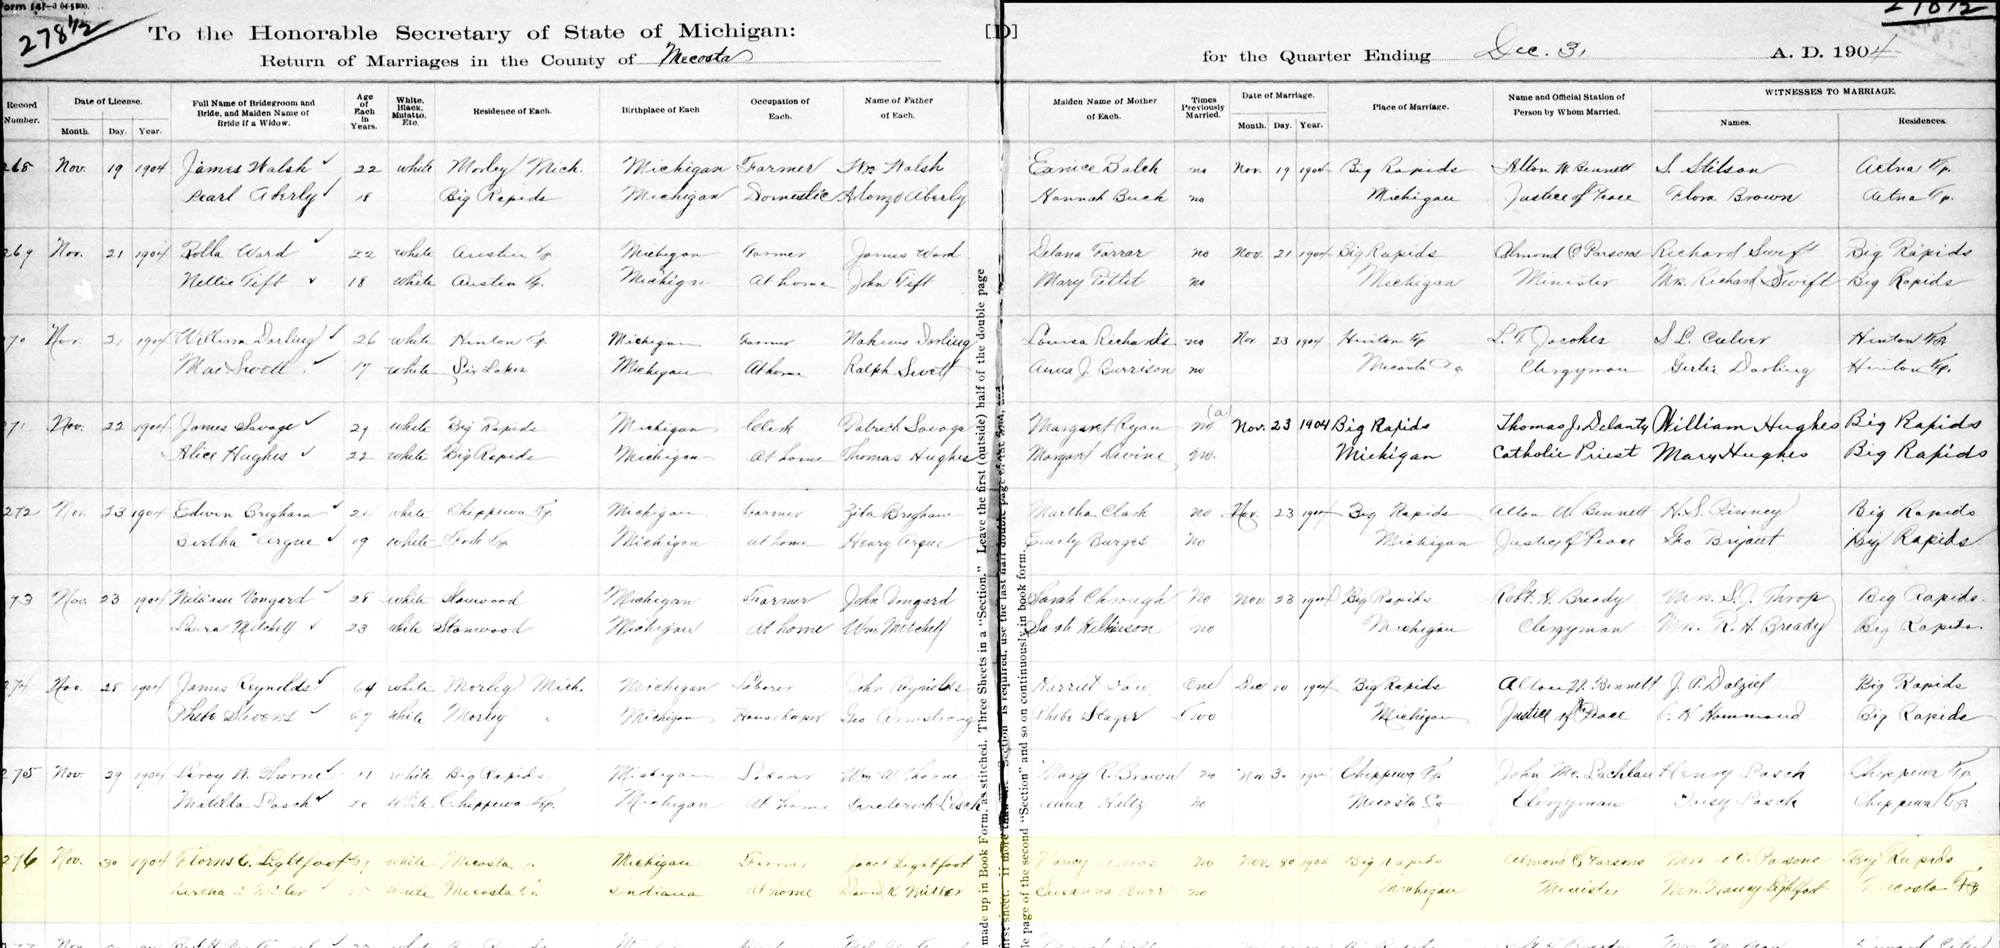 278½
To the Honorable Secretary of State of Michigan: [D]
Return of Marriages in the County of Mecosta for the Quarter Ending Dec. 31 A. D. 1904
Record Number. Date of License. Month. Day. Year. Full Name of Bridegroom and Bride, and Maiden Name of Bride if a Widow. Age of Each in Years. White, Black, Mulatto, Etc. Residence of Each. Birthplace of Each Occupation of Each. Name of Father of Each. Maiden Name of Mother of Each. Times Previously Married. Date of Marriage. Month. Day. Year. Place of Marriage. Name and Official Station of Person by Whom Married. WITNESSES TO MARRIAGE. Names. Residences.
268 Nov. 19 1904 James Walsh 22 white Morley Mich. Michigan Farmer Wm Walsh Eunice Balch no Nov. 19 1904 Big Rapids Alton W. Bennett S. Stilson Aetna Tp.
Pearl Aberly 18 Big Rapids Michigan Domestic Alonzo Aberly Hannah Buck no Michigan Justice of Peace Flora Brown Aetna Tp.
269 Nov. 21 1904 Rolla Ward 22 white Austin Tp Michigan Farmer James Ward Delana Farrar no Nov. 21 1904 Big Rapids Almond C Parsons Richard Swift Big Rapids
Nettie Tift 18 white Austin Tp. Michigan At home John Tift Mary Pettit no Michigan Minister Mrs. Richard Swift Big Rapids
270 Nov. 21 1904 William Darling 26 white Hinton Tp. Michigan Farmer Darling Louisa Richards no Nov 23 1904 Hinton Tp S L Culver Hinton Tp
Mae Swett 17 white Six Lakes Michigan At home Ralph Swett Anna J. Burrison no Mecosta Co. Clergyman Gertie Darling Hinton Tp.
271 Nov. 22 1904 James Savage 29 white Big Rapids Michigan Clerk Patrick Savage Margaret Ryan no (a) Nov. 23 1904 Big Rapids Thomas J. Delanty William Hughes Big Rapids
Alice Hughes 22 white Big Rapids Michigan At home Thomas Hughes Margaret no. Michigan Catholic Priest Mary Hughes Big Rapids
272 Nov. 23 1904 Edwin Brigham white Chippewa Tp. Michigan Farmer Brigham Martha Clark no Nov. 23 1904 Big Rapids Alton W Bennett H. S. Pinney Big Rapids
Bertha Argue 19 white Fork Tp Michigan at home Henry Argue Emily Burges no Michigan Justice of Peace Geo Bryant Big Rapids
273 Nov. 23 1904 William Vongard 28 white Stanwood Michigan Farmer John Vongard Sarah no Nov. 23 1904 Big Rapids Robt. H. Bready Mrs. S. J. Throp Big Rapids.
Laura Mitchell 23 white Stanwood Michigan At home Wm. Mitchell Sarah Wilkinson no Michigan Clergyman Mrs. R. H. Bready Big Rapids.
274 Nov. 28 1904 James Reynolds 64 white Morley Mich. Michigan Laborer John Reynolds Harriet One Dec 10 1904 Big Rapids Alton W. Bennett J. P. Dalziel Big Rapids
Phebe Stevens 67 white Morley " Michigan Housekeeper Geo Armstrong Phebe Seager Two Michigan Justice of Peace C. H Hammond Big Rapids
275 Nov. 29 1904 Leroy W. Thorne white Big Rapids Michigan Laborer Wm W. Thorne Mary R. Brown no Nov. 30 Chippewa Tp John Mc. Lachlan Henry Lasch Chippewa Tp.
Matilda Lasch 20 white Chippewa Tp. Michigan At home Frederick Lesch Anna Holtz no Mecosta Co Clergyman Daisy Lasch Chippewa Tp.
276 Nov. 30 1904 Florus C. Lightfoot white Mecosta Michigan Farmer Jacob Lightfoot Nancy Amos No Nov. 30 1904 Big Rapids Almond C Parsons Mrs. A C. Parsons Big Rapids
Bertha Miller white Mecosta Indiana At home David R Miller Susanna Burr no Michigan Minister Mrs. Nancy Lightfoot Mecosta Tp
made up in Book Form, as stitched, Three Sheets in a "Section." Leave the first (outside) half of the double page
le page of the second "Section" and so on continuously in book form.